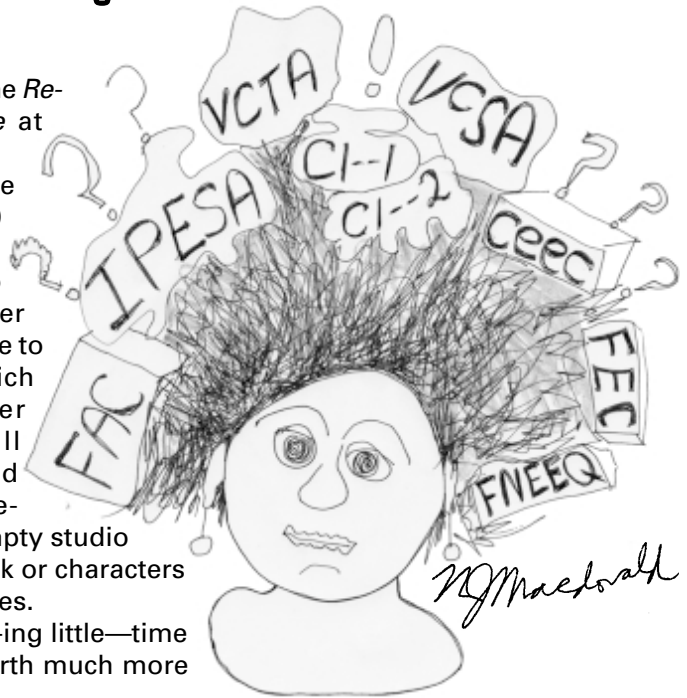 g
ne Re-
e at
e
er
e to
ich
er
ll
d
e-
pty studio
k or characters
es.
-ing little—time
rth much more
VCTA
!
VCSA
?
C1--1
C1--2
?
?
IPESA
ceec
?
?
?
FAC
FEC
FNEEQ
NJMacdonald